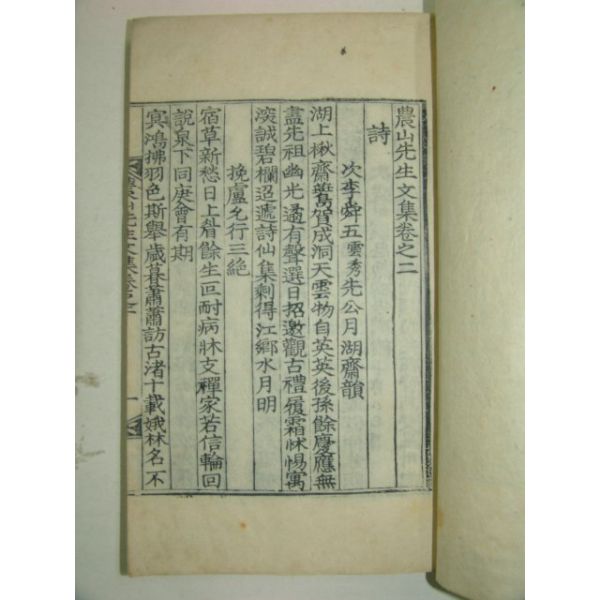 農山先生文集卷之二
詩
次李舜五雲秀先公月湖齋韻
湖上楸齋鶯賀成洞天雲物自英英後孫餘慶應無
盡先祖幽光適有聲選日招邀觀古禮履霜怵惕寓
深誠碧欄迢遞詩仙集剩得江鄉水月明
挽盧允行三絶
宿草新愁日上眉餘生叵耐病牀支禪家若信輪回
說泉下同庚會有期
冥鴻拂羽色斯擧歲暮蕭蕭訪古渚十載娥林名不
農山先生文集卷之二
一